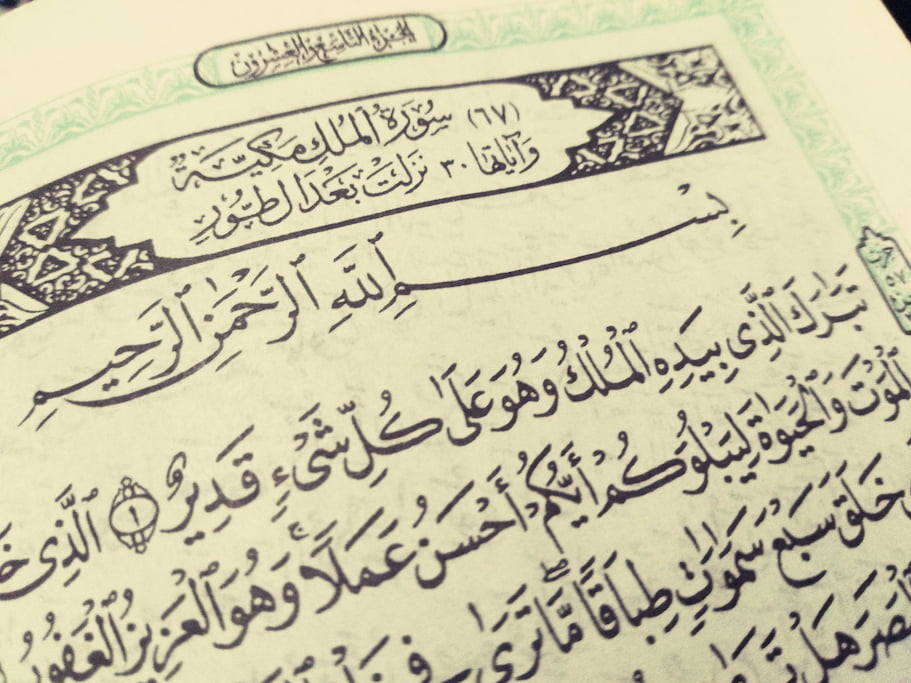 الجزء التاسع والعشرون
(٦٧) سُورَةُ الْمُلْكِ مَكِّيَّة
وَآيَاتُهَا ٣٠ نَزَلَتْ بَعْدَ الطُّورِ
بِسْمِ ٱللَّهِ ٱلرَّحْمَٰنِ ٱلرَّحِيمِ
تَبَٰرَكَ ٱلَّذِى بِيَدِهِ ٱلْمُلْكُ وَهُوَ عَلَىٰ كُلِّ شَىْءٍ قَدِيرٌ ١ ٱلَّذِى
ٱلْمَوْتَ وَٱلْحَيَوٰةَ لِيَبْلُوَكُمْ أَيُّكُمْ أَحْسَنُ عَمَلًا وَهُوَ ٱلْعَزِيزُ ٱلْغَفُورُ
خَلَقَ سَبْعَ سَمَٰوَٰتٍ طِبَاقًا مَّا تَرَىٰ فِى
هَلْ